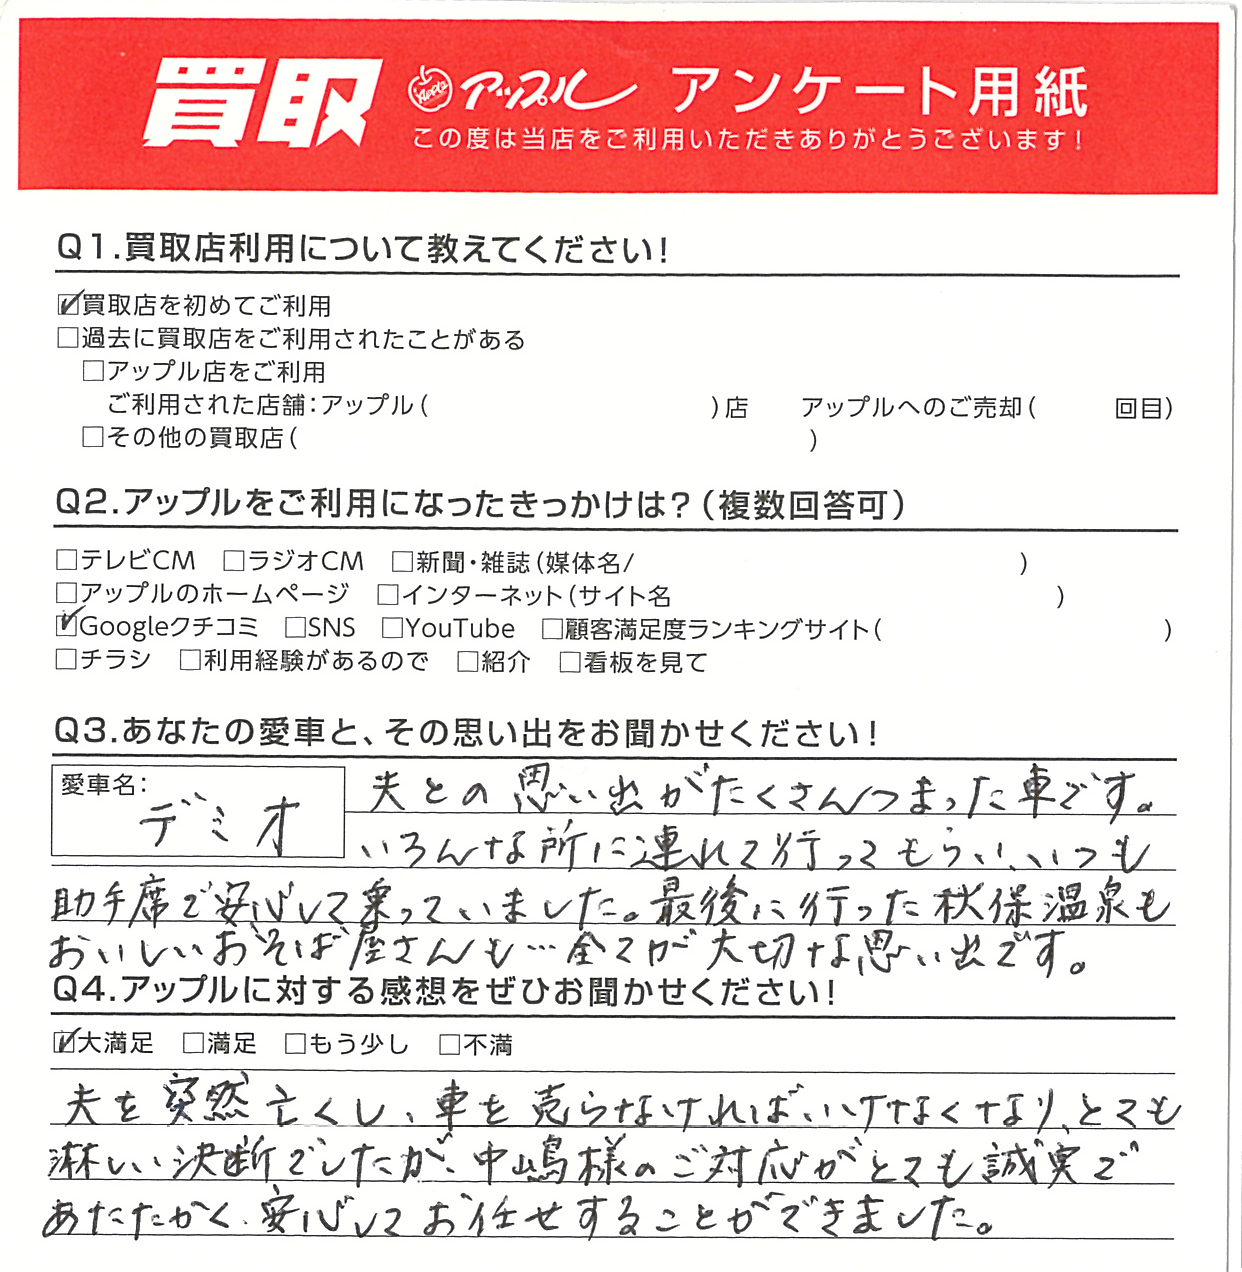 買取 Apple アップル アンケート用紙
この度は当店をご利用いただきありがとうございます!
Q1.買取店利用について教えてください!
☑買取店を初めてご利用
□過去に買取店をご利用されたことがある
□アップル店をご利用
ご利用された店舗:アップル( )店 アップルへのご売却( 回目)
□その他の買取店( )
Q2.アップルをご利用になったきっかけは?(複数回答可)
□テレビCM □ラジオCM □新聞・雑誌(媒体名/ )
□アップルのホームページ □インターネット(サイト名 )
☑Googleクチコミ □SNS □YouTube □顧客満足度ランキングサイト( )
□チラシ □利用経験があるので □紹介 □看板を見て
Q3.あなたの愛車と、その思い出をお聞かせください!
愛車名: デミオ
夫との思い出がたくさんつまった車です。
いろんな所に連れて行ってもらい、いつも
助手席で安心して乗っていました。最後に行った秋保温泉も
おいしいおそば屋さんも…全てが大切な思い出です。
Q4.アップルに対する感想をぜひお聞かせください!
☑大満足 □満足 □もう少し □不満
夫を突然亡くし、車を売らなければいけなくなり、とても
淋しい決断でしたが、中嶋様のご対応がとても誠実で
あたたかく、安心してお任せすることができました。